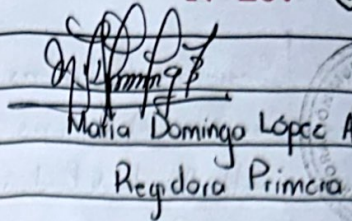 Maria Domingo Lopez A
Regidora Primera